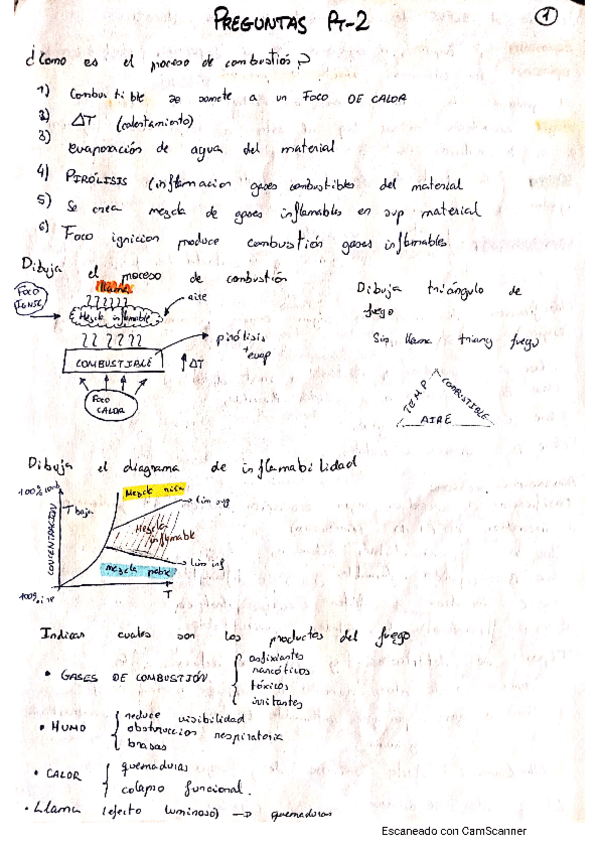 PREGUNTAS PT-2
1
¿Como es el proceso de combustión?
1) Combustible se somete a un FOCO DE CALOR
2) ΔT (calentamiento)
3) evaporación de agua del material
4) PIRÓLISIS (inflamacion gases combustibles del material
5) Se crea mezcla de gases inflamables en sup material
6) Foco ignicion produce combustión gases inflamables
Dibuja el proceso de combustión
FOCO IGNIC
llama
aire
Mezcla inflamable
pirólisis + evap
COMBUSTIBLE
↑ΔT
FOCO CALOR
Dibuja triángulo de
fuego
Sin llama triang fuego
TEMP
COMBUSTIBLE
AIRE
Dibuja el diagrama de inflamabilidad
100% comb
CONCENTRACIÓN
T baja
Mezcla rica
lim sup
Mezcla inflamable
lim inf
mezcla pobre
100% aire
T
Indicar cuales son los productos del fuego
• GASES DE COMBUSTIÓN
asfixiantes
narcóticos
tóxicos
irritantes
• HUMO
reduce visibilidad
obstruccion respiratoria
brasas
• CALOR
quemaduras
colapso funcional.
• Llama (efecto luminoso) → quemaduras
Escaneado con CamScanner